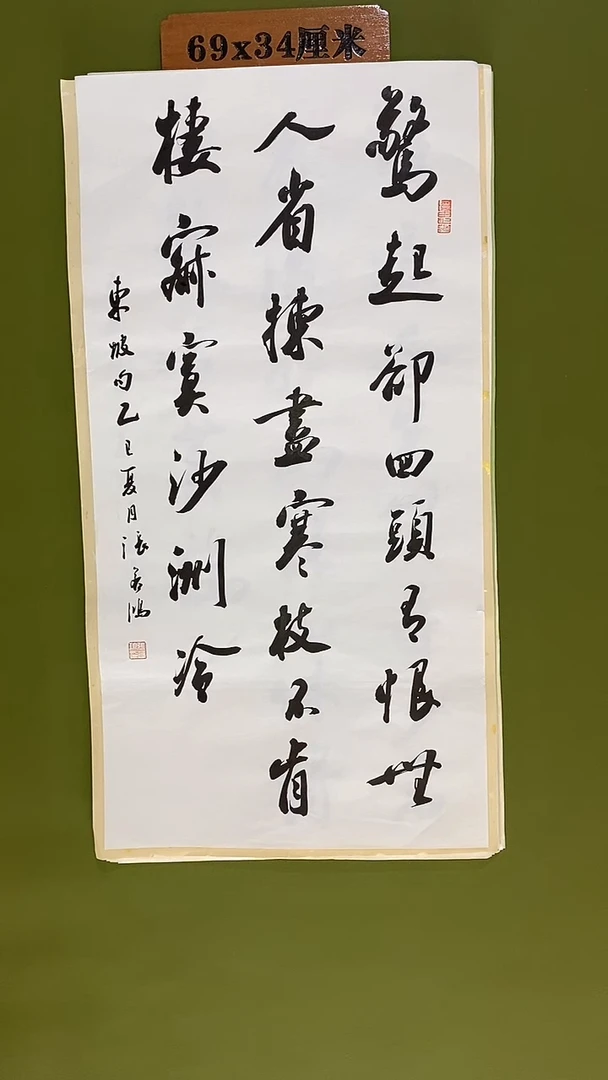 69x34厘米
驚起卻回頭有恨無
人省揀盡寒枝不肯
棲寂寞沙洲冷
東坡句乙巳夏月張若鴻